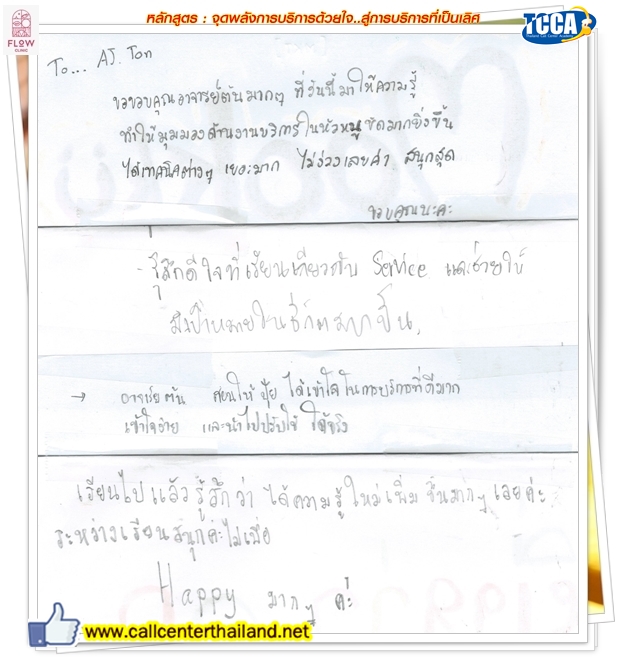 FLOW
CLINIC
หลักสูตร : จุดพลังการบริการด้วยใจ..สู่การบริการที่เป็นเลิศ
TCCA
Thailand Call Center Academy
To... AJ. Ton
ขอขอบคุณอาจารย์ต้นมากๆ ที่วันนี้มาให้ความรู้
ทำให้มุมมองด้านงานบริการในหัวหนูชัดมากยิ่งขึ้น
ได้เทคนิคต่างๆ เยอะมาก ไม่ง่วงเลยค่า สนุกสุด
ขอบคุณนะคะ
- รู้สึกดีใจที่เรียนเกี่ยวกับ Service และช่วยให้
มีเป้าหมายในชีวิตมากขึ้น
→ อาจารย์ต้น สอนให้ ปุ้ย ได้เข้าใจในการบริการที่ดีมาก
เข้าใจง่าย และนำไปปรับใช้ ได้จริง
เรียนไปแล้วรู้สึกว่า ได้ความรู้ใหม่เพิ่มขึ้นมากๆ เลยค่ะ
ระหว่างเรียนสนุกค่ะไม่เบื่อ
Happy มากๆ ค่ะ
www.callcenterthailand.net